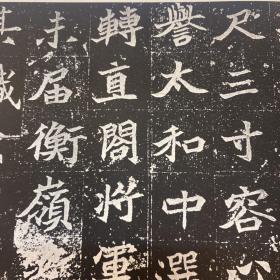 尺三寸容
譽太和中選
轉直閤將軍
未届衡嶺
其